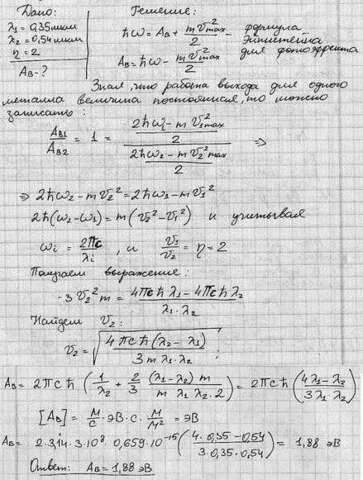 Дано:
λ₁ = 0,35 мкм
λ₂ = 0,54 мкм
η = 2
Aв - ?
Решение:
ħω = Aв + mv²max/2 - формула Эйнштейна для фотоэффекта
Aв = ħω - mv²max/2
Зная, что работа выхода для одного
металла величина постоянная, то можно
записать:
Aв1/Aв2 = 1 = ((2ħω₁ - mv₁²max)/2)/((2ħω₂ - mv₂²max)/2) ⇒
⇒ 2ħω₂ - mv₂² = 2ħω₁ - mv₁²
2ħ(ω₂-ω₁) = m(v₂² - v₁²) и учитывая
ωi = 2πc/λi, и v₁/v₂ = η = 2
Получаем выражение:
-3v₂²m = (4πcħλ₁ - 4πcħλ₂)/(λ₁·λ₂)
Найдем v₂:
v₂ = √(4πcħ(λ₂ - λ₁)/(3m λ₁·λ₂));
Aв = 2πcħ(1/λ₂ + 2/3 (λ₁-λ₂)m/(m λ₁λ₂·2)) = 2πcħ((4λ₁-λ₂)/(3λ₁λ₂))
[Aв] = м/с · эВ·с · м/м² = эВ
Aв = 2·3,14·3·10⁸·0,659·10⁻¹⁵((4·0,35-0,54)/(3·0,35·0,54)) = 1,88 эВ
Ответ: Aв = 1,88 эВ